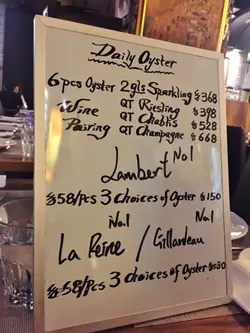 Daily Oyster
6 pcs Oyster 2gls Sparkling $368
Wine QT Riesling $398
Pairing QT Chablis $528
QT Champagne $668
Lambert No1
$58/Pcs 3 choices of Oyster $150
No.1 No.1
La Reine / Gillardeau
$58/Pcs 3 choices of Oyster